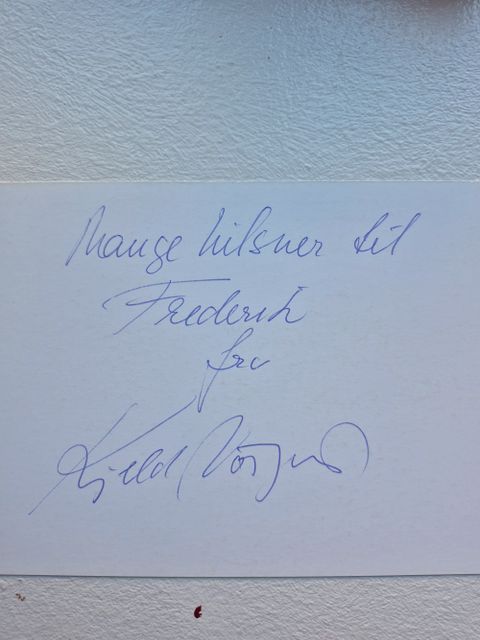 Mange hilsner til
Frederik
fra
Kjeld